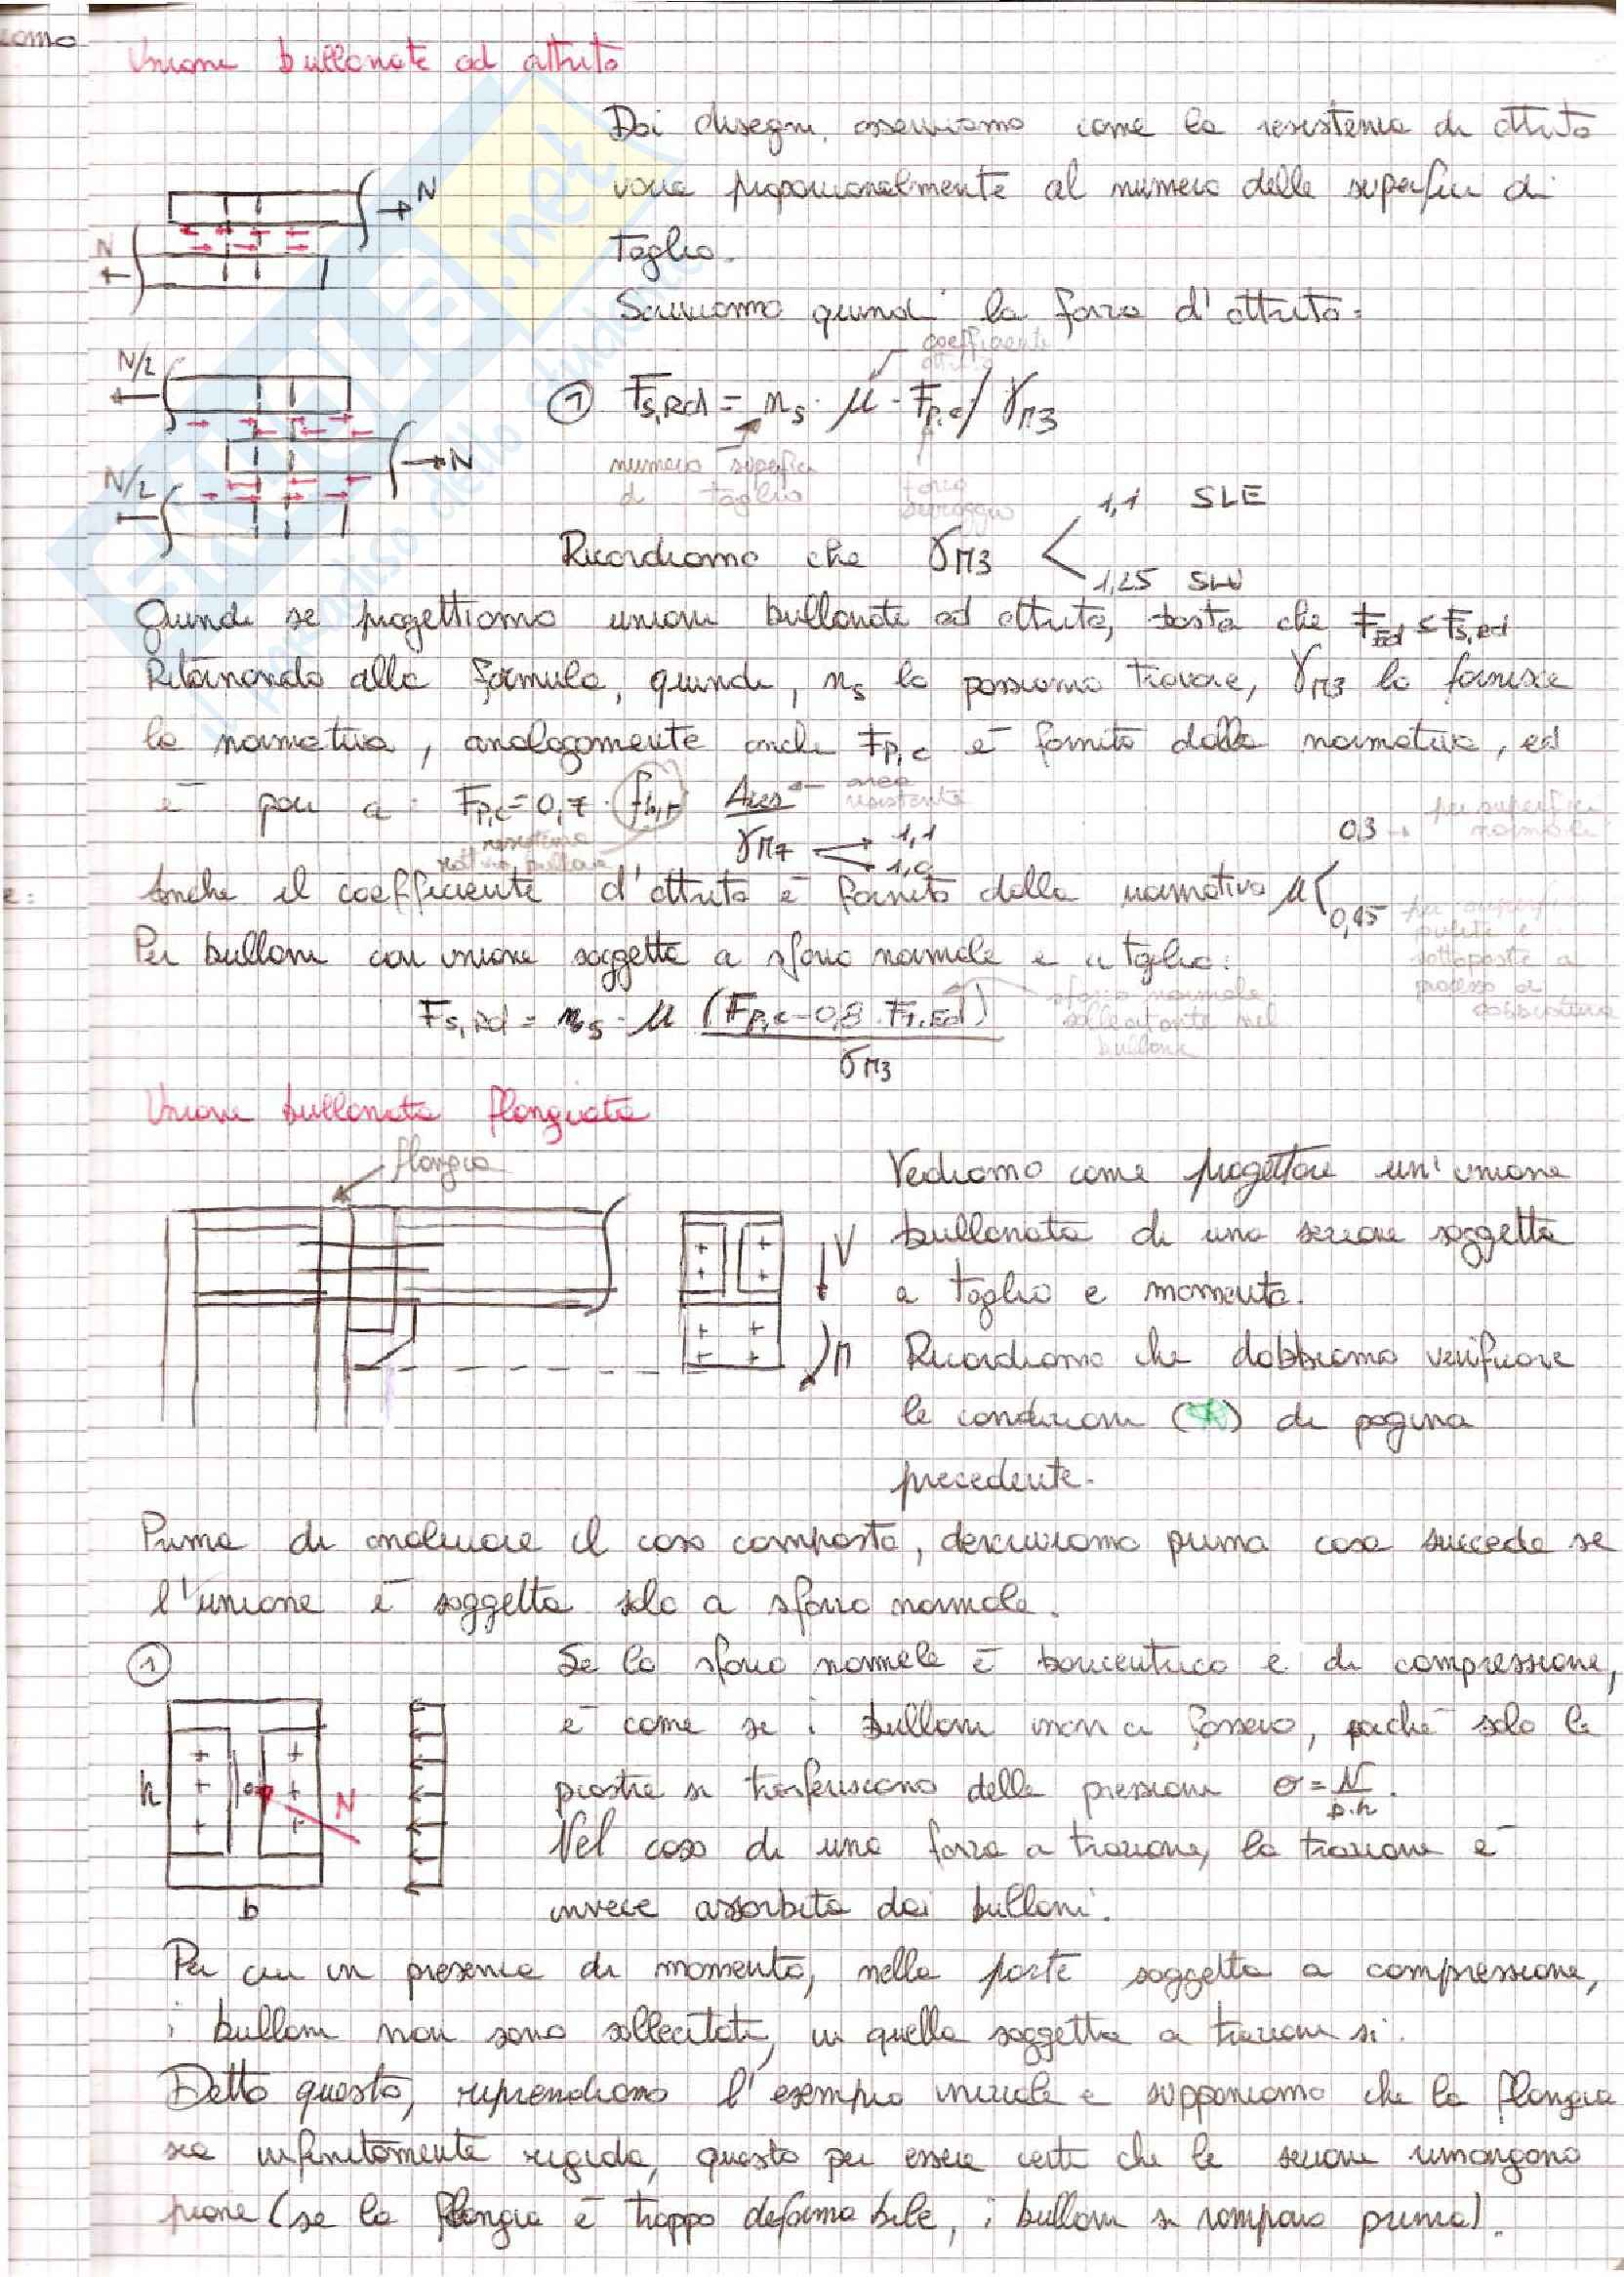 Unione bullonate ad attrito
Dai disegni, osserviamo come la resistenza di attrito
varia proporzionalmente al numero delle superfici di
taglio.
Scriviamo quindi la forza d'attrito:
N
N
coefficiente
attrito
N/2
① Fs,Rd = ns · μ · Fp,c / γM3
N
numero superfici
di taglio
forza
serraggio
N/2
1,1 SLE
Ricordiamo che γM3 <
1,25 SLU
Quindi se progettiamo unioni bullonate ad attrito, basta che FEd ≤ Fs,Rd
Ritornando alla formula, quindi, ns lo possiamo trovare, γM3 lo fornisce
la normativa, analogamente anche Fp,c è fornito dalla normativa, ed
è pari a: Fp,c = 0,7 · fb,r Ares ← area
resistente
γM7
1,1
1,0
resistenza
0,3 → per superfici
normali
Anche il coefficiente d'attrito è fornito dalla normativa μ
0,45 per superfici
pulite e
sottoposte a
processo di
sabbiatura
Per bulloni con unione soggetta a sforzo normale e a taglio:
Fs,Rd = ns · μ (Fp,c - 0,8 · Ft,Ed)
γM3
sforzo normale
sollecitante nel
bullone
Unione bullonata flangiata
flangia
V
M
Vediamo come progettare un'unione
bullonata di una sezione soggetta
a taglio e momento.
Ricordiamo che dobbiamo verificare
le condizioni (*) di pagina
precedente.
Prima di analizzare il caso composto, descriviamo prima cosa succede se
l'unione è soggetta solo a sforzo normale.
①
h
N
b
Se lo sforzo normale è baricentrico e di compressione,
è come se i bulloni non ci fossero, poiché solo le
piastre si trasferiscono delle pressioni σ = N
b·h
.
Nel caso di una forza a trazione, la trazione è
invece assorbita dai bulloni.
Per cui in presenza di momento, nella parte soggetta a compressione,
i bulloni non sono sollecitati, in quella soggetta a trazioni si.
Detto questo, riprendiamo l'esempio iniziale e supponiamo che la flangia
sia infinitamente rigida, questo per essere certi che le sezioni rimangono
piane (se la flangia è troppo deformabile, i bulloni si rompono prima).